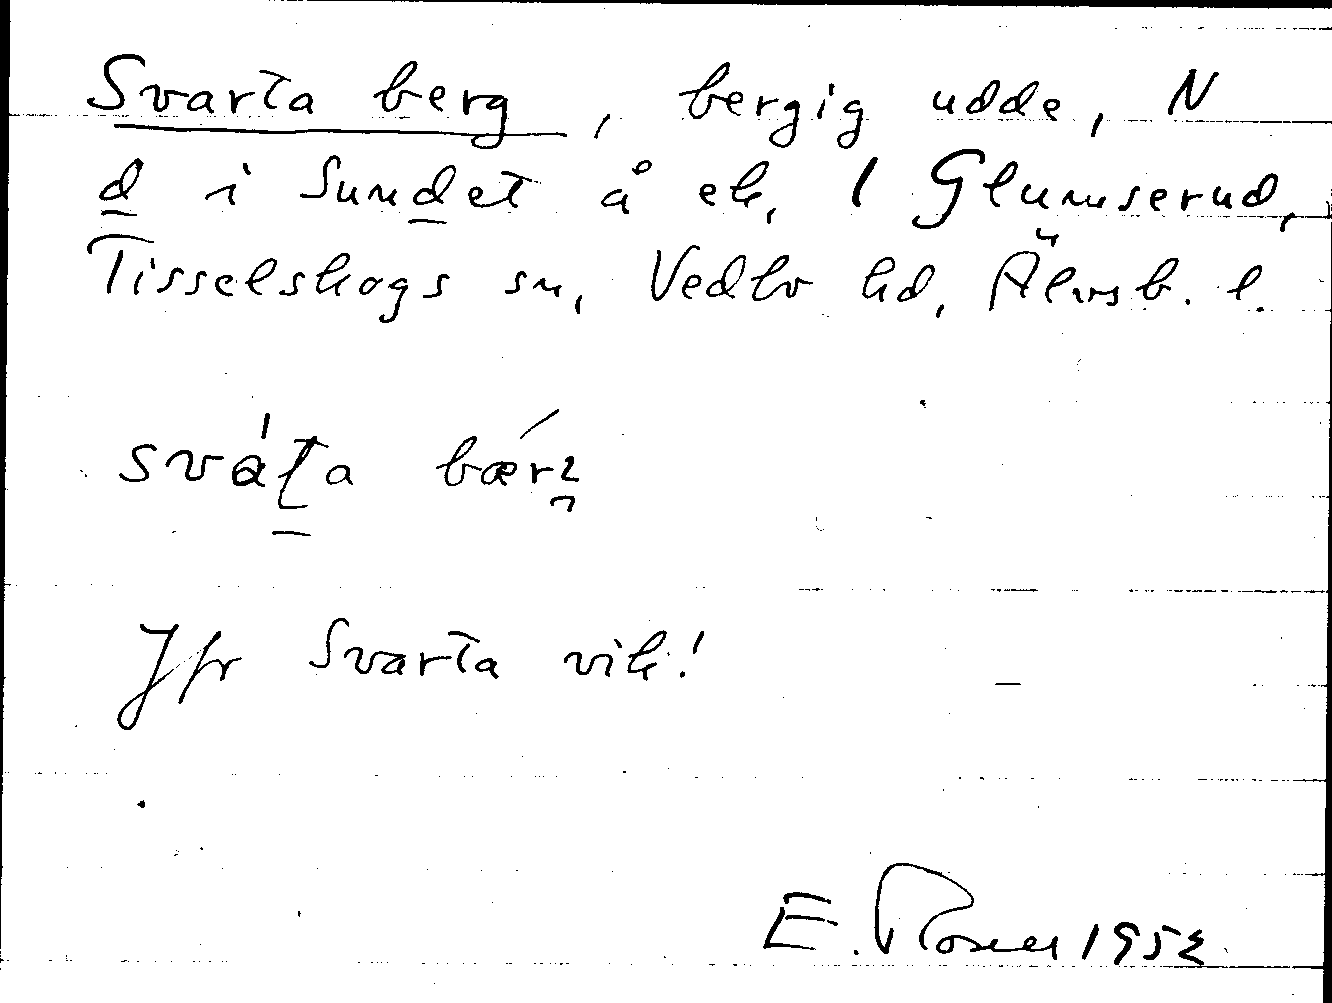 Svarta berg, bergig udde, N
d i Sundet å ek, 1 Glumserud,
Tisselskogs sn, Vedbo hd, Älvsb. l.
Jfr Svarta vik!
E. Rosell 1952